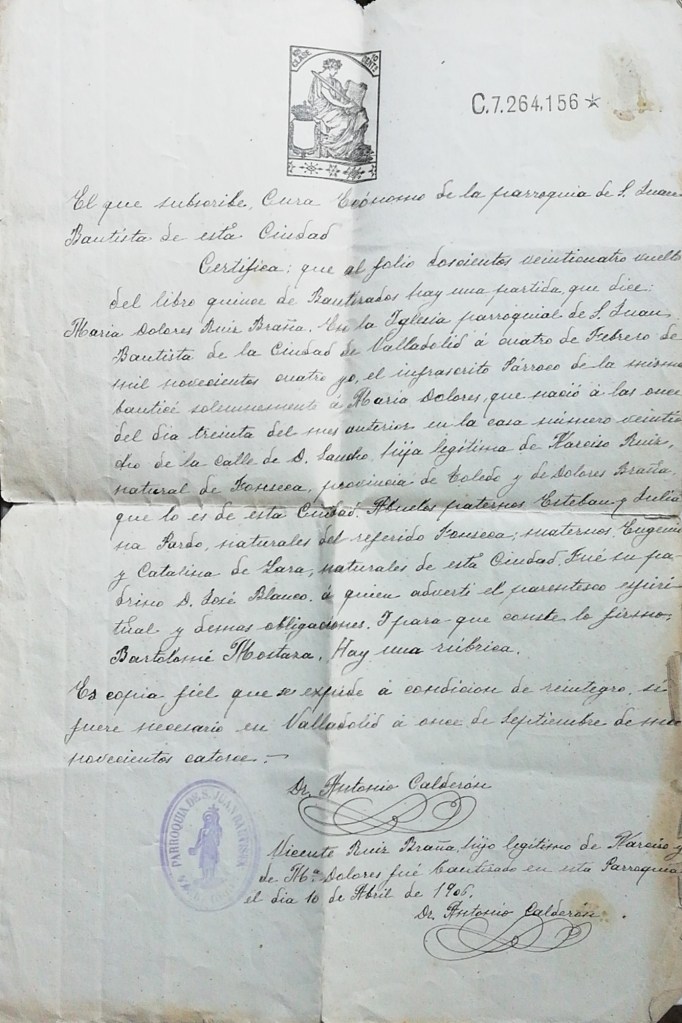 CLASE
10 CENTS
C.7.264.156
El que subscribe, Cura Ecónomo de la parroquia de S. Juan
Bautista de esta Ciudad
Certifica: que al folio doscientos veinticuatro vuelto
del libro quince de Bautizados hay una partida que dice:
Maria Dolores Ruiz Braña. En la Iglesia parroquial de S. Juan
Bautista de la Ciudad de Valladolid á cuatro de Febrero de
mil novecientos cuatro yo, el infrascrito Párroco de la misma
bauticé solemnemente á Maria Dolores, que nació á las once
del dia treinta del mes anterior en la casa número veintio
cho de la calle de D. Sancho, hija legítima de Narciso Ruiz,
natural de Fonseca, provincia de Toledo y de Dolores Braña,
que lo es de esta Ciudad. Abuelos paternos Esteban y Julia
na Pardo, naturales del referido Fonseca; maternos, Eugenio
y Catalina de Lara, naturales de esta Ciudad. Fué su pa
drino D. José Blanco, á quien advertí el parentesco espiri
tual y demas obligaciones. I para que conste lo firmo.
Bartolomé Mostaza. Hay una rúbrica.
Es copia fiel que se expide á condicion de reintegro, si
fuere necesario en Valladolid á once de Septiembre de mil
novecientos catorce.-
Dr. Antonio Calderón
PARROQUIA DE S. JUAN BAUTISTA
Vicente Ruiz Braña, hijo legítimo de Narciso y
de Mª Dolores fué bautizado en esta Parroquia
el dia 10 de Abril de 1906.
Dr. Antonio Calderón